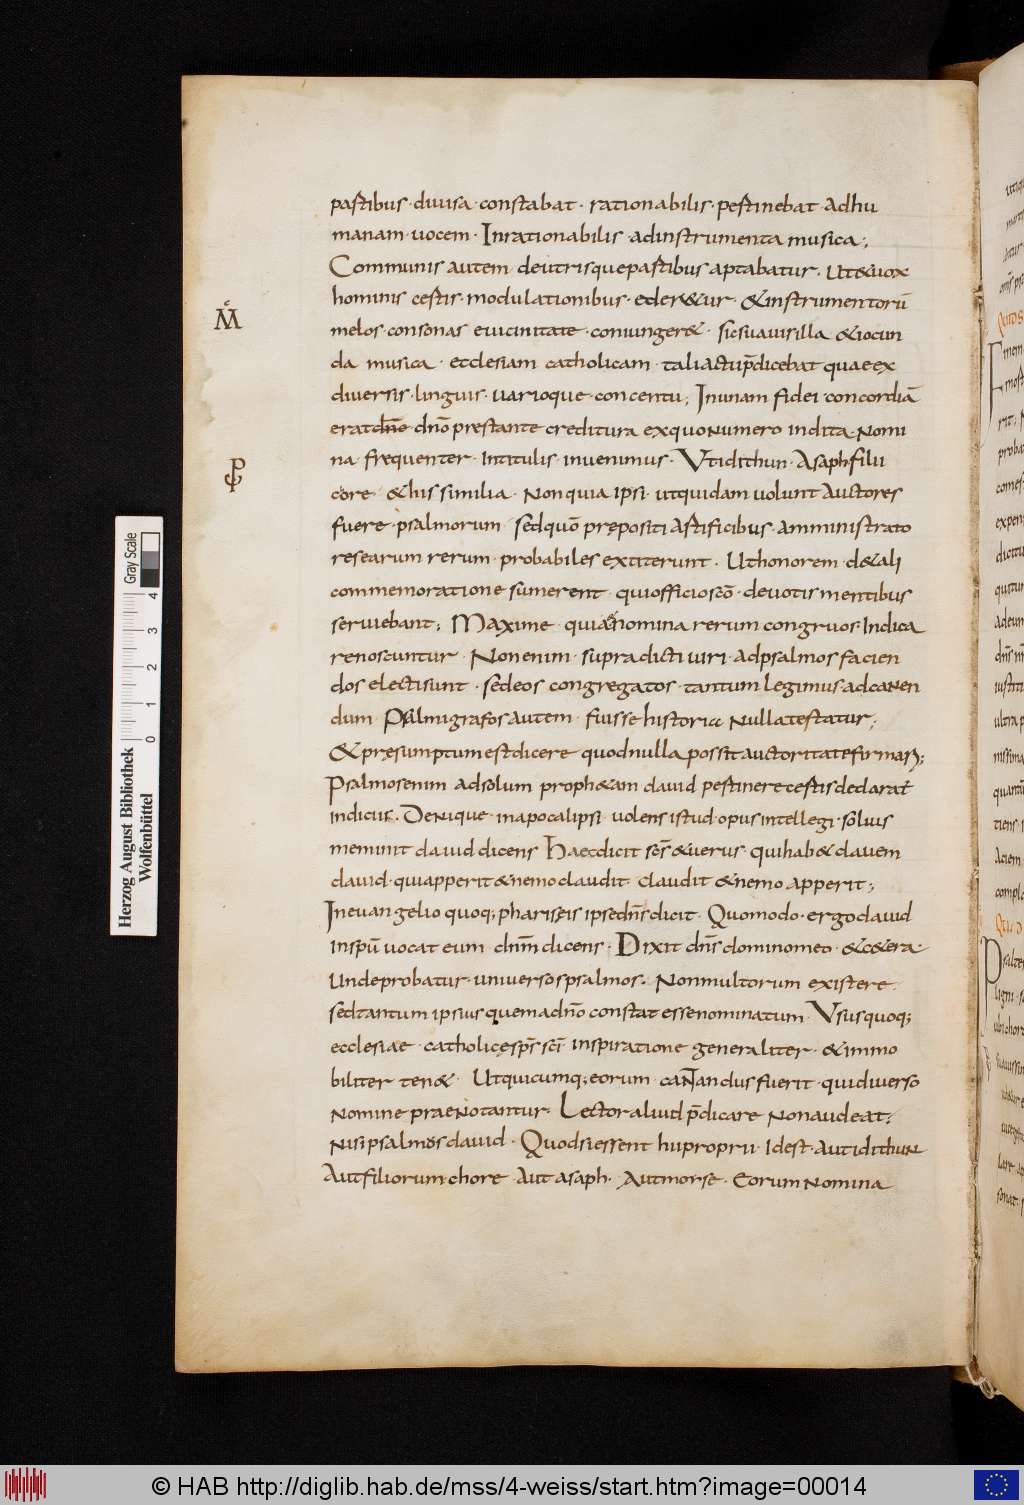 partibus · diuisa · constabat · rationabilis · pertinebat · adhu
manam · uocem · Inrationabilis · adinstrumenta musica ;
Communis autem · deutrisque partibus aptabatur · ut & uox
hominis certis · modulationibus · eder&ur · & instrumentorū
melos · consonas e uicinitate · coniunger& · sic suauis illa & iocun
da musica · ecclesiam catholicam · tali actu p̄dicebat quae ex
diuersis · linguis · uarioque · concentu ; In unam fidei concordiā
erat dn̄e dn̄o prestante creditura ex quo numero indita · nomi
na · frequenter · intitulis · inuenimus · Vt idithun · Asaph filii
core · & his similia · Non quia ipsi · ut quidam uolunt auctores
fuere · psalmorum · sed quō prępositi artificibus · amministrato
res earum rerum · probabiles extiterunt · Ut honorem · d& ali
commemoratione sumerent · qui officio scō · deuotis mentibus
seruiebant ; Maxime · quia nomina rerum congruos · Indica
re noscuntur · Non enim · supradicti uiri · ad psalmos facien
dos electi sunt · sed eos congregatos · tantum legimus ad canen
dum · Psalmigrafos autem · fuisse historia nulla testatur ;
& pręsumptum est dicere quod nulla possit auctoritate firmari ;
Psalmos enim ad solum proph&am dauid pertinere certis declarat̄
indiciis . Denique · in apocalipsi · uolens istud · opus intellegi · soluis
meminit dauid dicens Haec dicit sc̄s & uerus · qui hab& clauem
dauid · qui apperit & nemo claudit · claudit & nemo apperit ;
In euangelio quoq; phariseis ipse dn̄s dicit · Quomodo · ergo dauid
in spū uocat eum dn̄m dicens · Dixit dn̄s domino meo · & c&era ·
Unde probatur · uniuersos psalmos . Non multorum existere ·
sed tantum ipsius quem a dn̄o constat esse nominatum · Vsus quoq;
ecclesiae · catholicę sp̄s sc̄i inspiratione generaliter · & immo
biliter ten& · Ut quicumq; eorum · cantandus fuerit · qui diuerso
nomine praenotantur · Lector aliud p̄dicare non audeat ;
Nisi psalmos dauid · Quod si essent hii proprii · Id est · aut idithun
Aut filiorum chore · aut asaph · Aut morse · Eorum nomina
Herzog August Bibliothek
Wolfenbüttel
Gray Scale
0 1 2 3 4
© HAB http://diglib.hab.de/mss/4-weiss/start.htm?image=00014